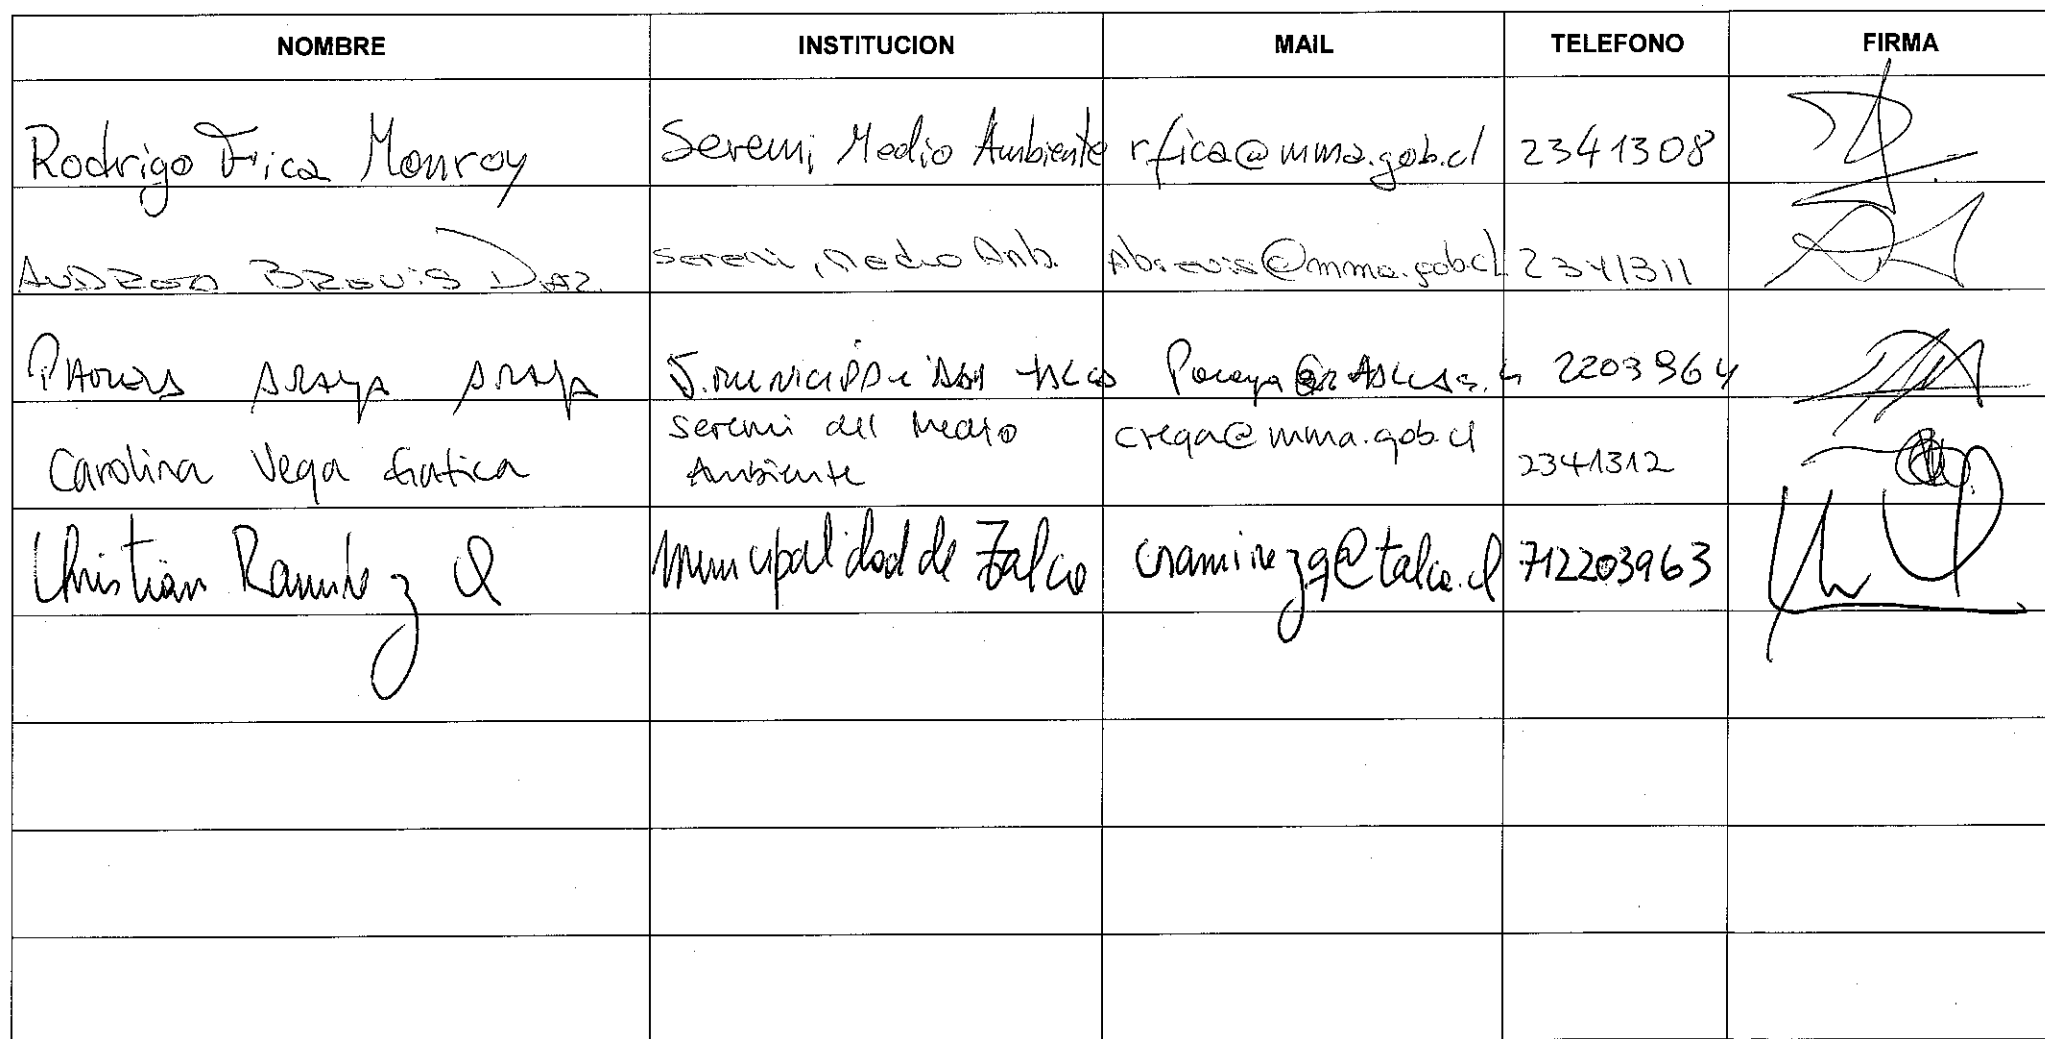 NOMBRE INSTITUCION MAIL TELEFONO FIRMA
Rodrigo Fica Monroy Seremi Medio Ambiente rfica@mma.gob.cl 2341308
BREVIS DIAZ Seremi, Medio Amb. Abrevis@mma.gob.cl 2341311
ARAYA ARAYA 2203964
Carolina Vega Gatica Seremi del Medio cvega@mma.gob.cl 2341312
Ambiente
Christian Ramirez Q Municipalidad de Talca cramirezq@talca.cl 712203963